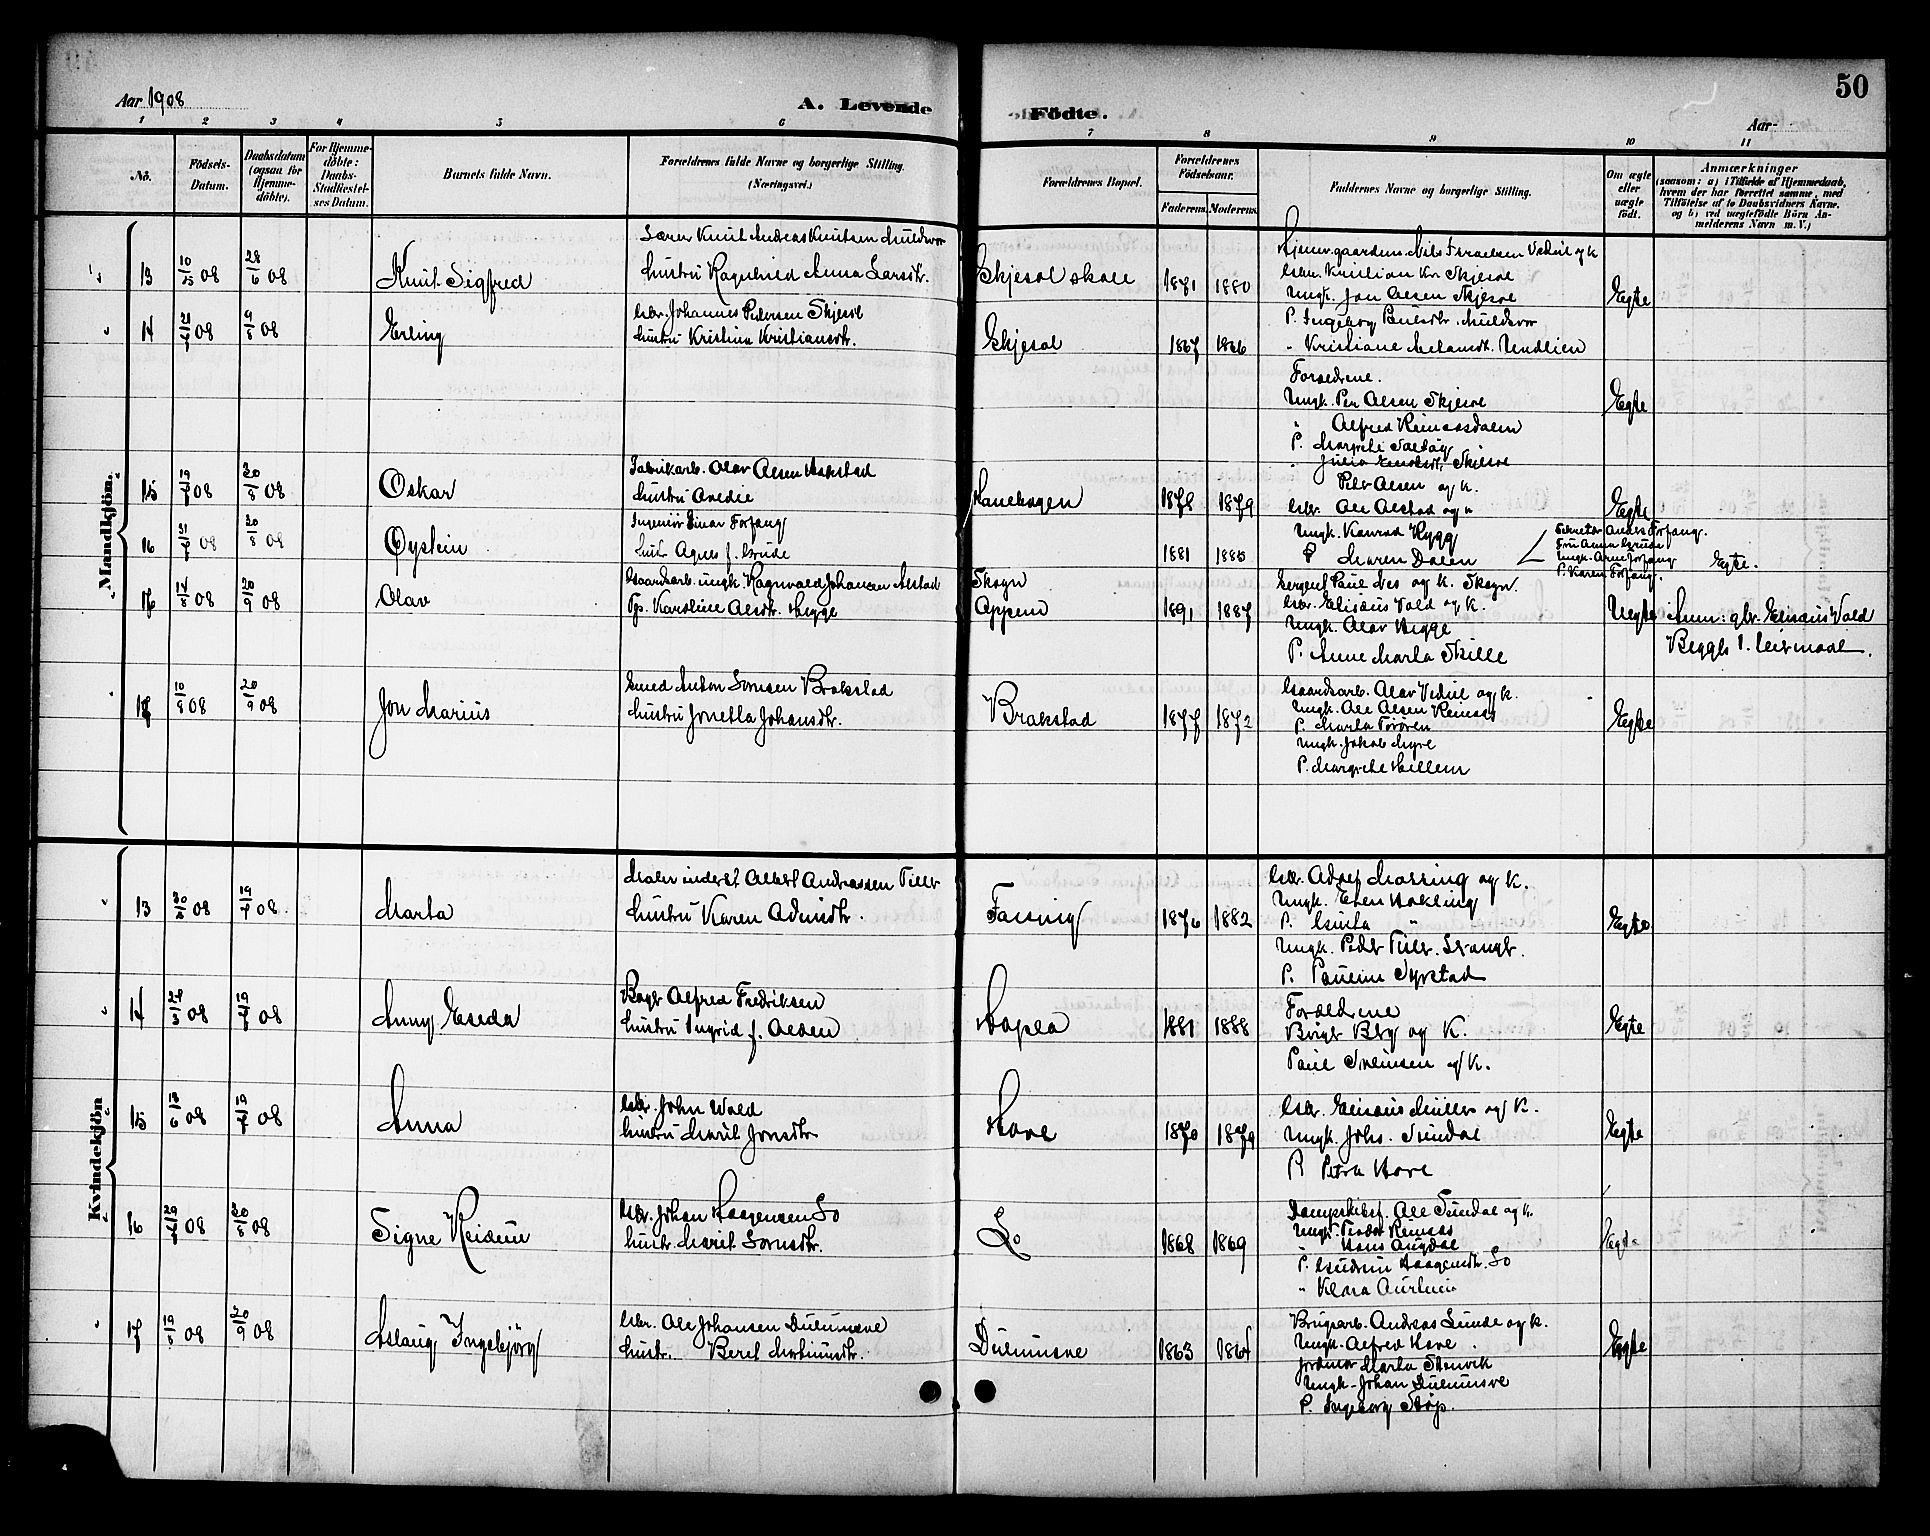 Aar 1908
A. Levende
Födte.
50
Aar
1 2 3 4 5 6 7 8 9 10 11
No.
Födsels-Datum.
Daabsdatum (ogsaa for Hjemme-döbte).
For Hjemme-döbte: Daabs-Stadfæstel-ses Datum.
Barnets fulde Navn.
Forældrenes fulde Navne og borgerlige Stilling. (Næringsvei.)
Forældrenes Bopæl.
Forældrenes Födselsaar.
Faderens. Moderens.
Faddernes Navne og borgerlige Stilling.
Om ægte eller uægte födt.
Anmærkninger
(saasom: a) i Tilfælde af Hjemmedaab, hvem der har forrettet samme, med Tilföielse af to Daabsvidners Navne, og b) ved uægtefödte Börn An-melderens Navn m. V.)
Mandkjön.
13 10/5 08 28/6 08 Knut Sigfred
Lærer Knut Andreas Knutsen Muldvor
hustru Ragnhild Anna Larsdtr.
Skjesol skole 1871 1880
Nils Israelsen Vedul og k
Gbr. Kristian Skjesol
Ungk. Jon Olsen Skjesol
P. Ingeborg Paulsdtr. Muldvor
" Kristiane Undlien
Egte
14 08 9/8 08 Erling
Gbr. Johannes Pedersen Skjesol
hustru Kristina Kristiansdtr.
Skjesol 1867 1866
Forældrene.
Ungk. Per Olsen Skjesol
" Alfred Reinaasdalen
P. Margrete Salthøy
" Julia Skjesol
Egte
15 19/7 08 30/8 08 Oskar
Fabrikarb. Olav Olsen Hokstad
hustru Oredie
Hanehogen 1878 1879
Petr Olsen og k.
Gbr. Ole Olstad og k
Ungk. Konrad Hygg
P Maren Dalen
Egte
16 21/7 08 30/8 08 Øystein
Ingeniør Einar Forfang
hustr Agnes f. Brude
1881 1885
Sekretær Anders Forfang.
Fru Anna Brude
Ungk. Arne Forfang
P. Karen Forfang.
Egte.
17 14/8 08 20/9 08 Olav
Gaardsarb. ungk Ragnvald Johansen Alstad
Tp. Karoline Olsdtr. Hegge
Skogn
Appem 1891 1887
Sergent Paul Nes og k. Skogn.
Gbr. Elisæus Vold og k.
Ungk. Olav Hegge
P. Anne Marta Skille
Uegte
Anm: gbr. Elisæus Vold
Begges 1. leiermaal.
18 10/8 08 20/9 08 Jon Marius
Smed Anton Lornsen Brakstad
hustru Jonetta Johansdtr.
Brakstad 1877 1872
Gaardsarb. Olav Vedul og k.
Ungk. Ole Olsen Reinaas
P. Marta Torøren
Ungk. Jakob Myre
P. Margrete Hellem
Egte
Kvindekjön
13 30/4 08 19/7 08 Marta
Maler inderst Albert Andreassen Tiller
hustru Karen
Fossing 1876 1882
Gbr. Adolf Mossing og k.
Ungk. Even Hokling
P. Gusta "
Ungk. Peder Tiller. Levanger.
P. Pauline Syrstad
Egte
14 24/5 08 19/7 08 Anny Eseda
Bager Alfred Fredriksen
hustru Ingrid f. Olsen
Hopla 1881 1888
Forældrene
Birger Bly og K.
Paul Sveinsen og k.
Egte
15 13/6 08 19/7 08 Anna
Gbr. John Vold
hustru Marit Jonsdtr
Hove 1870 1879
Gbr. Elisæus Müller og k.
Ungk. Johs. Sundal
P. Petra Hove
Egte
16 08 30/8 08 Signe Reidun
Gbr. Johan Haagensen Lo
hustr. Marit Lornsdtr.
Lo 1868 1869
Dampskibsf. Ole Sundal og k.
Ungk. Teodor Reinaas
" Hans Augdal
P. Gudrun Haagensdtr. Lo
" Klara
Egte
17 19/8 08 20/9 08 Aslaug Ingebjörg
Gbr. Ole Johansen Dulumsve
hustr. Beret Martinusdtr.
Dulumsve 1863 1864
Brugsarb. Andreas Lunde og k.
Ungk. Alfred Hove.
Jordmor Marta Stenvik
Ungk. Johan Dulumsve
P. Ingeborg Støp.
Egte